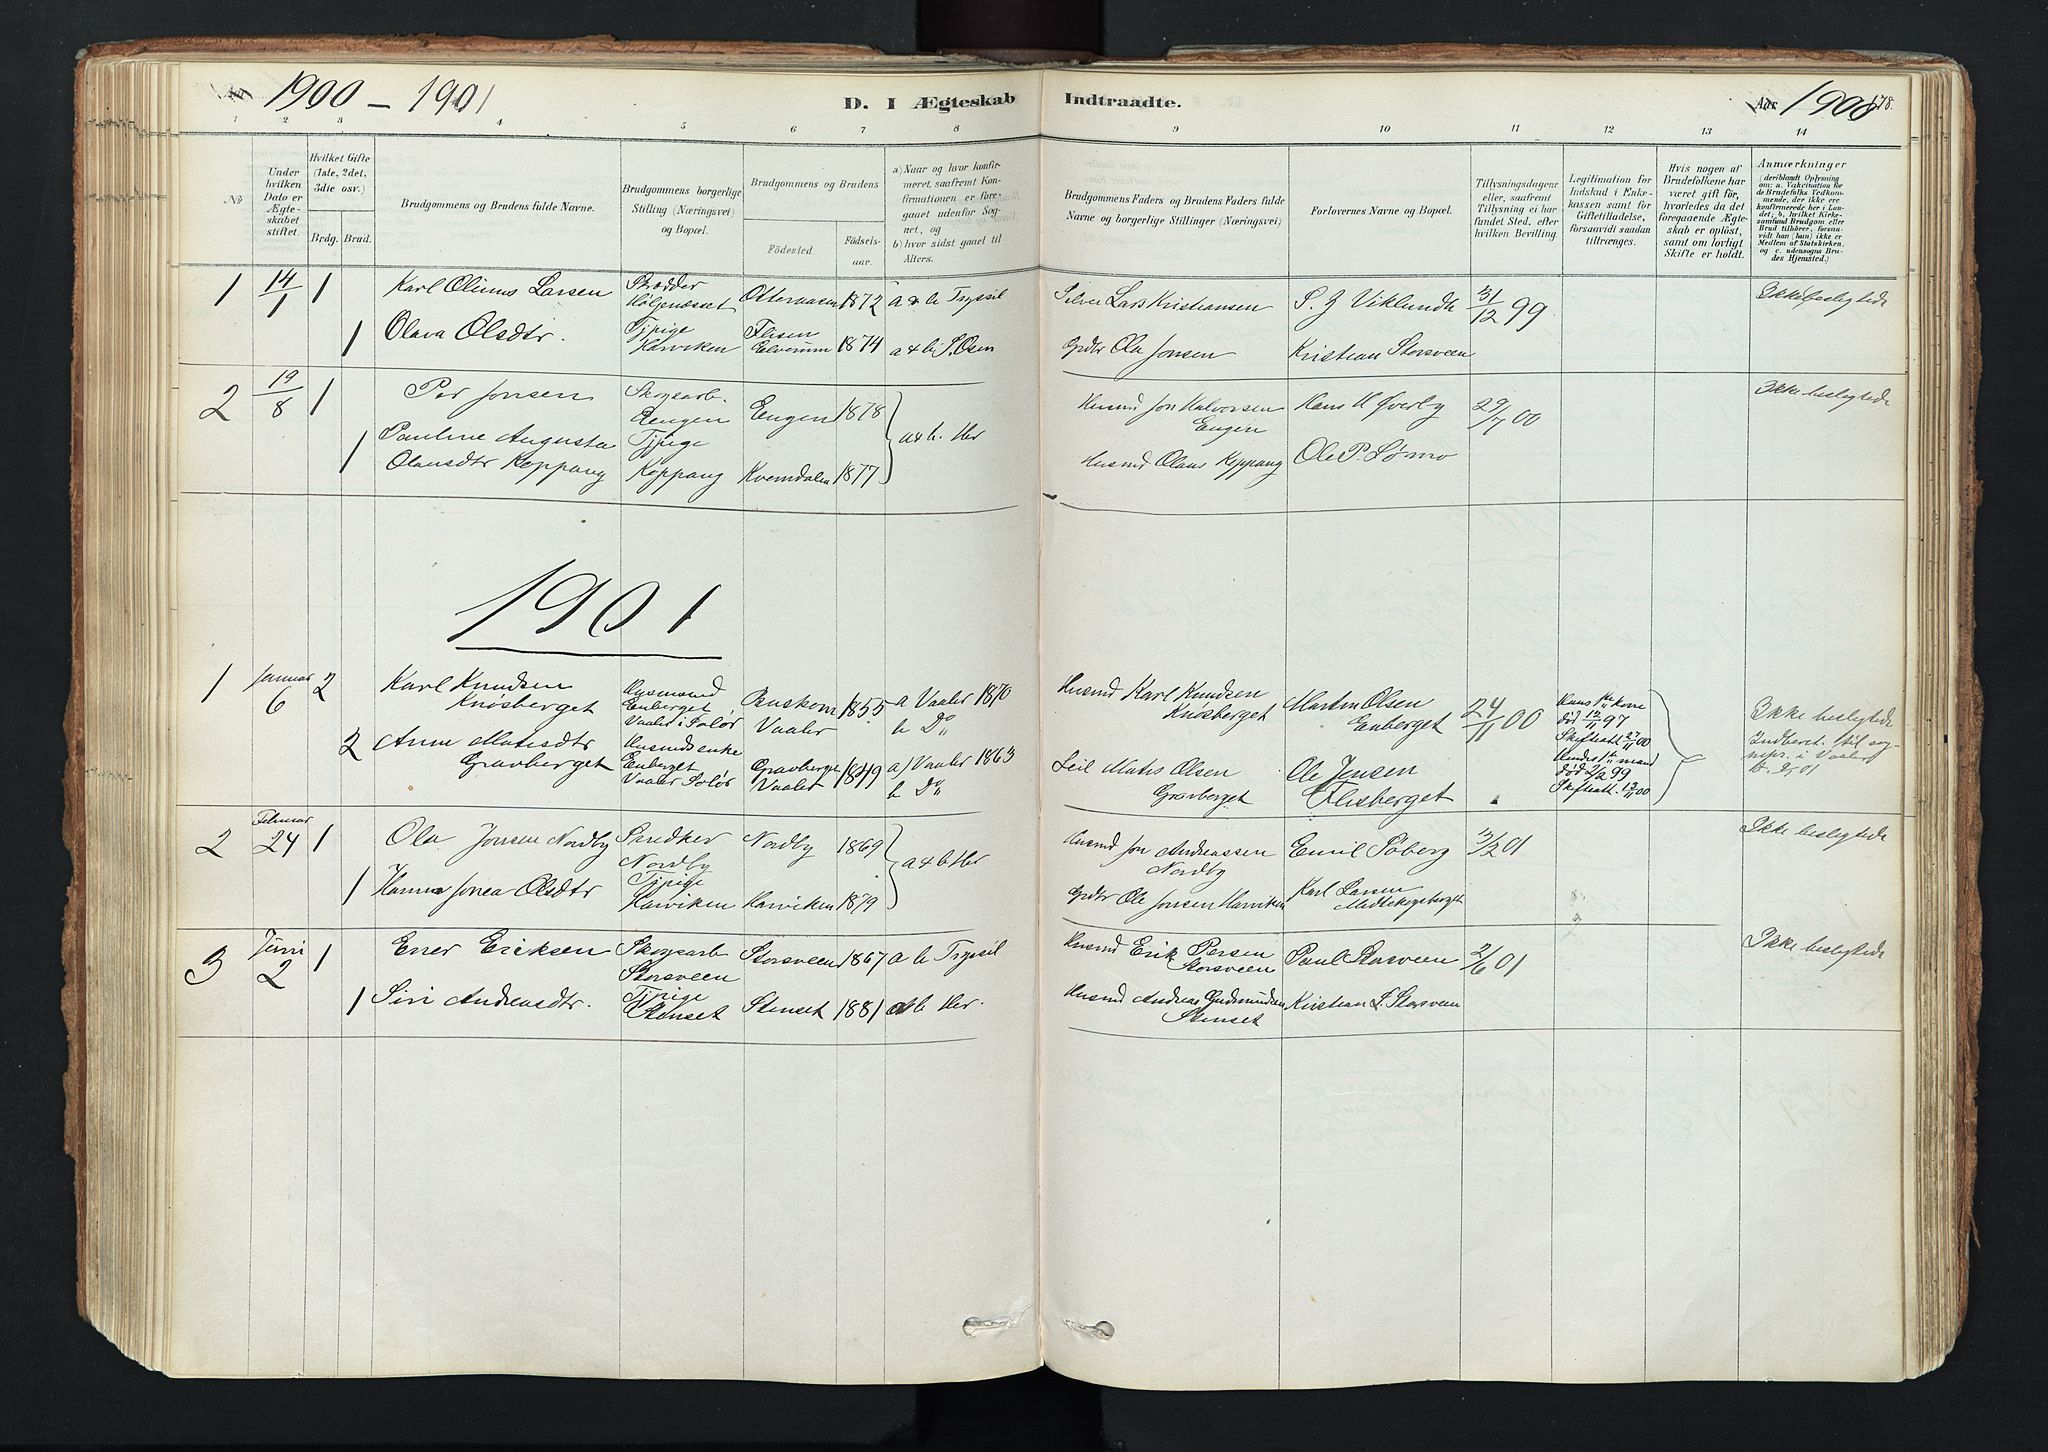 1900 - 1901
D. I Ægteskab
Indtraadte.
Aar 1900
178.
1 2 3 4 5 6 7 8 9 10 11 12 13 14
No
Under hvilken Dato er Ægteskabet stiftet.
Hvilket Gifte (1ste, 2det, 3die osv.)
Brdg. Brud.
Brudgommens og Brudens fulde Navne.
Brudgommens borgerlige Stilling (Næringsvei) og Bopæl.
Brudgommens og Brudens
Fødested.
Fødselsaar.
a) Naar og hvor konfirmeret, saafremt Konfirmationen er foregaaet udenfor Sognet, og
b) hvor sidst gaaet til Alters.
Brudgommens Faders og Brudens Faders fulde Navne og borgerlige Stillinger (Næringsvei)
Forlovernes Navne og Bopæl.
Tillysningsdagene eller, saafremt Tillysning ei har fundet Sted, efter hvilken Bevilling.
Legitimation for Indskud i Enkekassen samt for Giftetilladelse, forsaavidt saadan tiltrænges.
Hvis nogen af Brudefolkene har været gift før, hvorledes da det foregaaende Ægteskab er opløst, samt om lovligt Skifte er holdt.
Anmærkninger
(deriblandt Oplysning om: a. Vakcination for de Brudefolks Vedkommende, der ikke ere konfirmerede her i Landet; b. hvilket Kirkesamfund Brudgom eller Brud tilhører, forsaavidt han (hun) ikke er Medlem af Statskirken, og c. udensogns Brudes Hjemsted.)
1 14/1 1 Karl Olinus Larsen Skrædder 1872 a & b Trysil Lars Kristiansen S. J Viklundh 31/12 99 Ikke beslegtede
1 Olava Olsdtr. Tjpige Harviken Flisen Elverum 1874 a & b S. Osen Grdbr Ola Jonsen Kristian Storsveen
2 19/8 1 Per Jonsen Skogsarb. Eengen Eengen 1878 a & b. Her Husmd Jon Halvorsen Engen Hans H Øverby 29/7 00 Ikke beslegtede
1 Pauline Augusta Olausdtr Koppang Tjpige Koppang Kvemdalen 1877 Husmd Olaus Koppang Ole P. Lørmo
1901
1 Januar 6 2 Karl Knudsen Knosberget Husmand Enberget Vaaler i Solør Vaaler 1855 a Vaaler 1870 b Do Husmd Karl Knudsen Knosberget Martin Olsen Enberget 24/11 00 Hans 1ste kone død 12/11 97 Skifteatt. 27/11 00 Ikke beslegtede
2 Anne Matisdtr Gravberget Husmdsenke Enberget Vaaler Solør Gravberget Vaaler 1849 a) Vaaler 1863 b Do Leil Matis Olsen Gravberget Ole Jensen Flisberget Hendes 1ste mand død 2/2 99 Skifteatt. 12/11 00 Indberet. til sognepr. i Vaaler
2 Februar 24 1 Ola Jonsen Nordby Snedker Nordby Nordby 1869 a & b Her Husmd Jon Andreassen Nordby Emil Søberg 3/2 01 Ikke beslegtede
1 Hanna Jonea Olsdtr Tjpige Harviken Harviken 1879 Grdbr Ole Jonsen Harviken Karl Larsen Midtskogberget
3 Juni 2 1 Ener Eriksen Skogsarb Storsveen Storsveen 1867 a b Trysil Husmd Erik Persen Storsveen Paul Storsveen 2/6 01 Ikke beslegtede
1 Siri Andreasdtr. Tjpige Stenset Stenset 1881 a b Her. Husmd Andreas Gudmundsen Stenset Kristian L. Storsveen